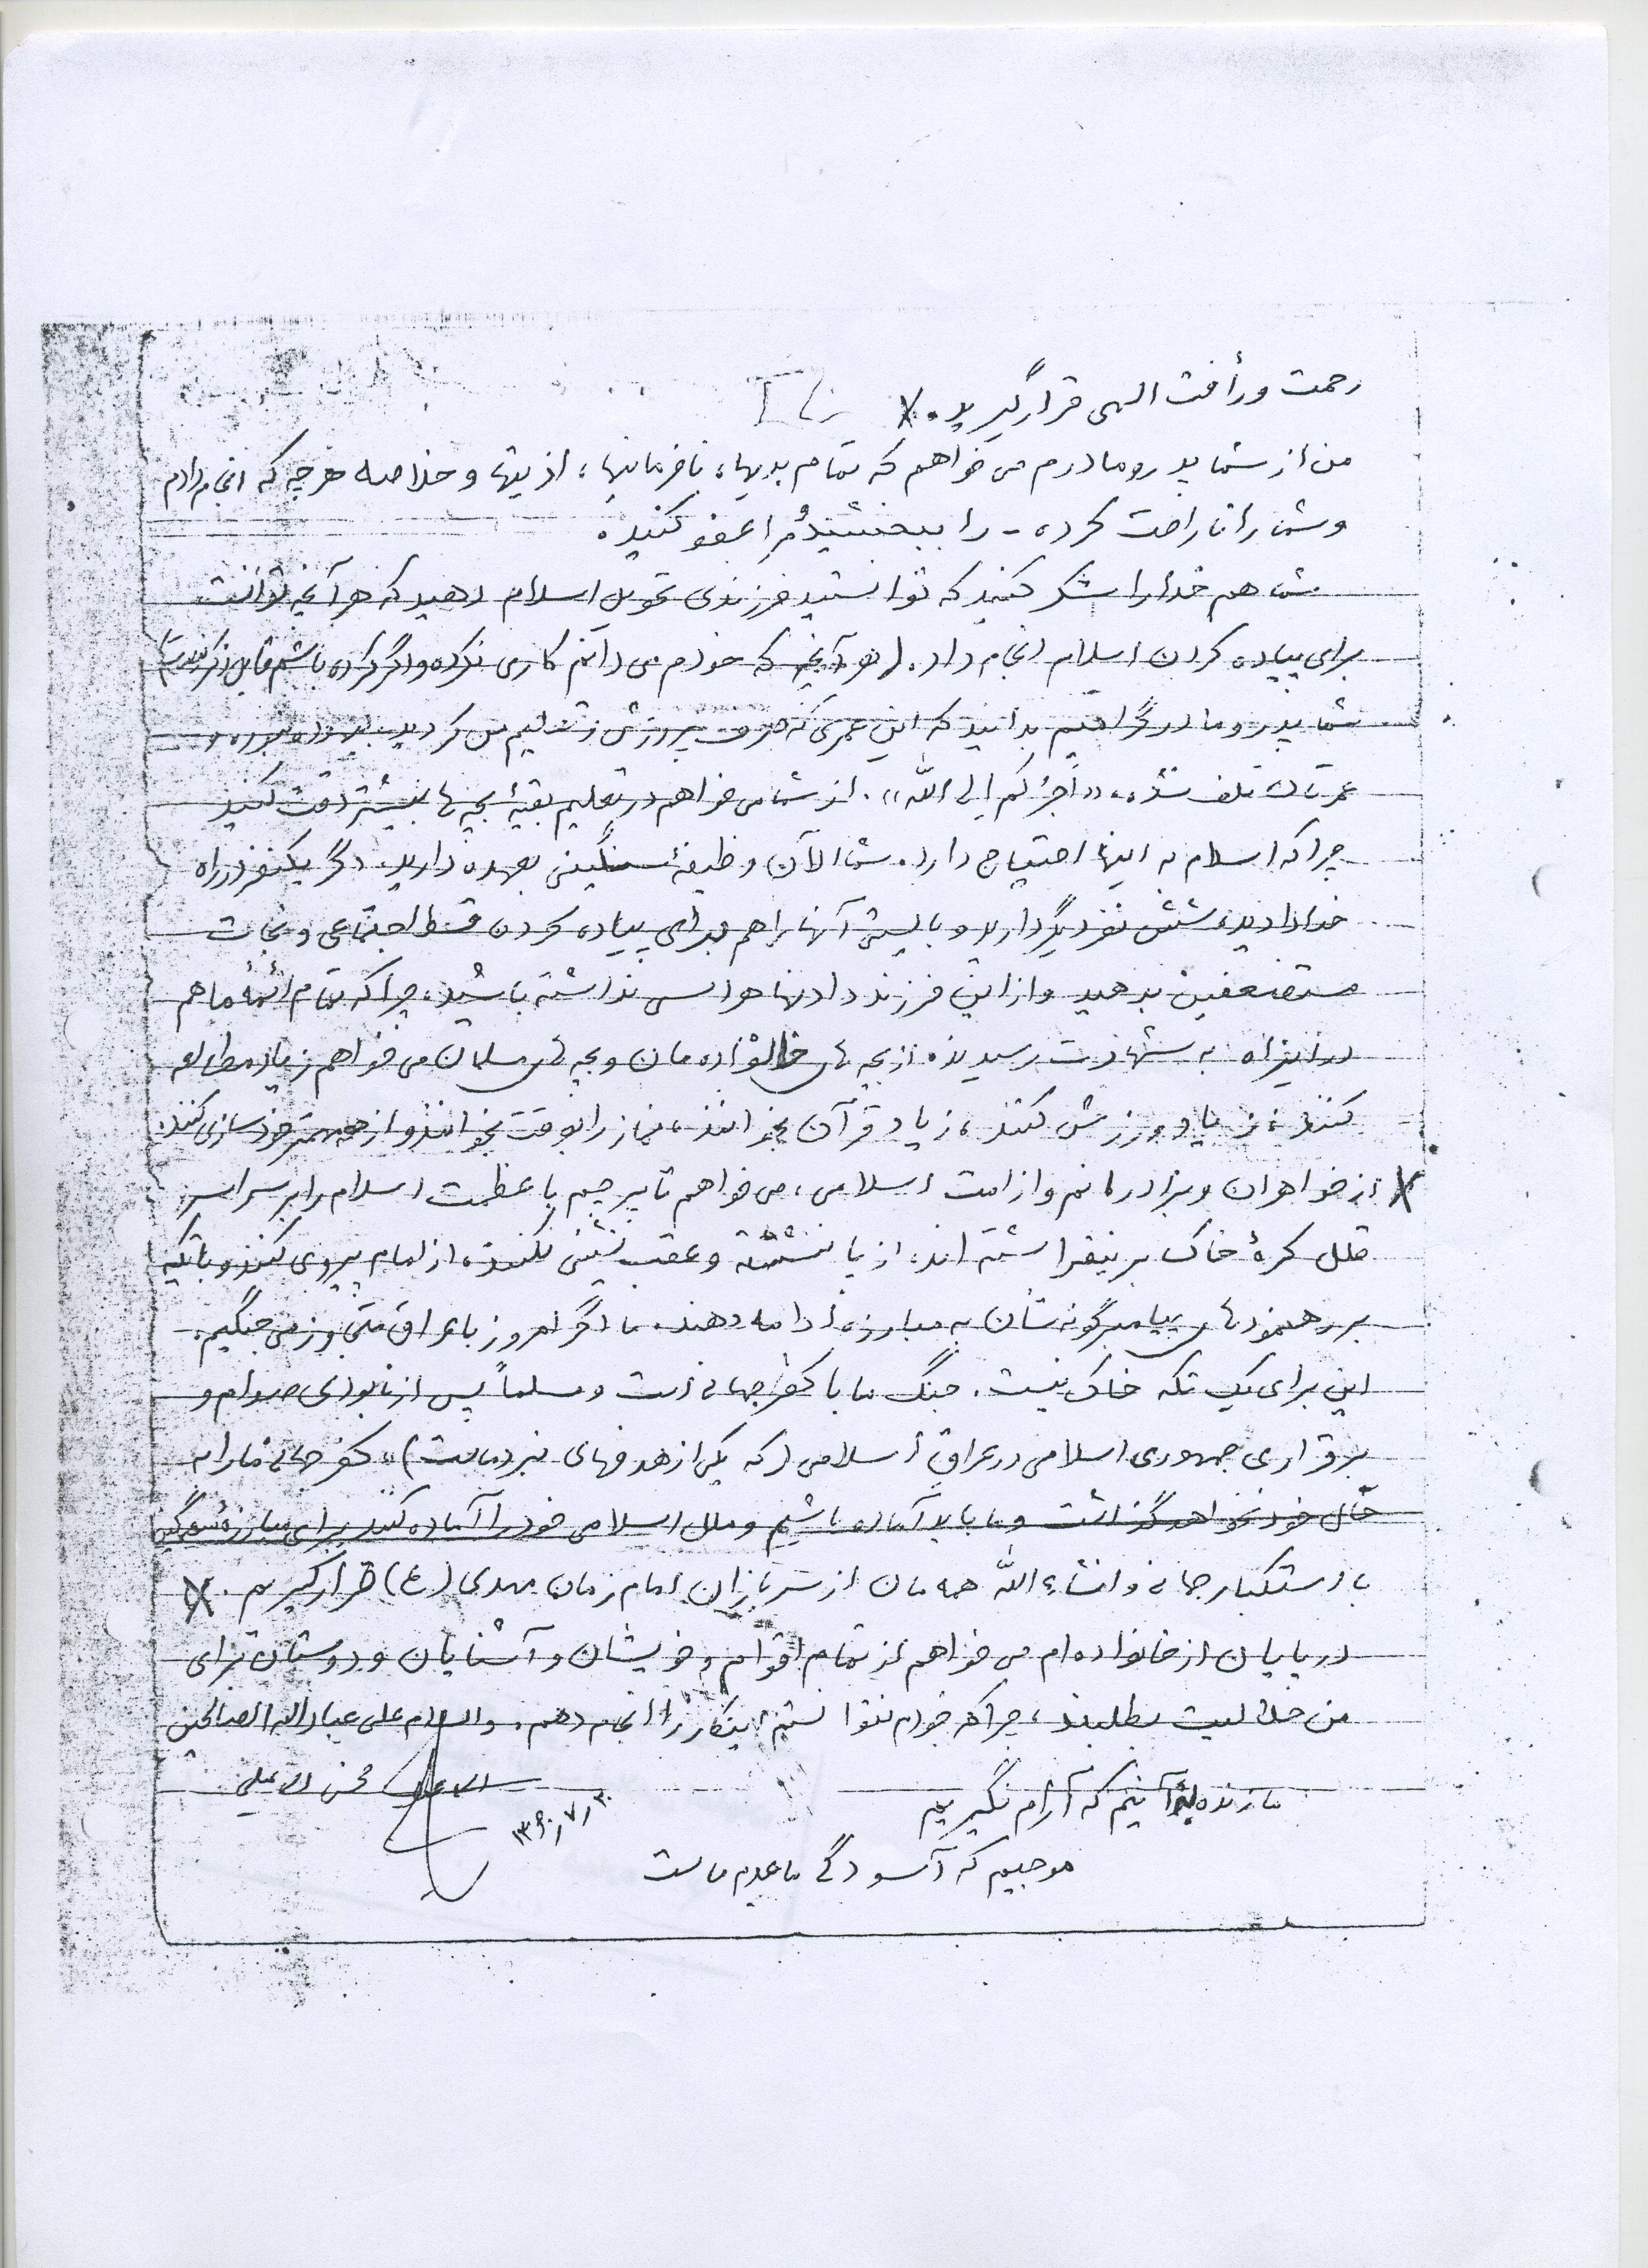 رحمت و رأفت الهی قرار گیرید.
من از شما پدر و مادرم می خواهم که تمام بدیها، نافرمانیها، اذیتها و خلاصه هر چه که انجام دادم
و شما را ناراحت کرده - را ببخشید و مرا عفو کنید.
شما هم خدا را شکر کنید که توانستید فرزندی تحویل اسلام دهید که هر آنچه توانست
برای پیاده کردن اسلام انجام داد. (هر آنچه که خودم می دانم کاری نکرده و اگر کرده باشم قابل ذکر نیست)
شما پدر و مادر گرامیم بدانید که این عمری که صرف پرورش و تعلیم من کردید بیهوده نبوده و
عمرتان تلف نشده، «اجرکم الی الله». از شما می خواهم در تعلیم بقیهٔ بچه ها بیشتر دقت کنید
چرا که اسلام به اینها احتیاج دارد. شما الآن وظیفهٔ سنگینی بعهده دارید. اگر یکنفر در راه
خدا دادید، شش نفر دیگر دارید و بایستی آنها را هم برای پیاده کردن قسط اجتماعی و نجات
مستضعفین بدهید و از این فرزند دادنها هراسی نداشته باشید، چرا که تمام ائمهٔ ما هم
در این راه به شهادت رسیدند. از بچه های خانواده مان و بچه های مسلمان می خواهم زیاد مطالعه
کنند، زیاد ورزش کنند، زیاد قرآن بخوانند، نماز را بوقت بخوانند و از همه مهمتر خودسازی کنند.
از خواهران و برادرانم و از امت اسلامی، می خواهم تا پرچم با عظمت اسلام را بر سراسر
قلل کرهٔ خاک بر نیفراشته اند، از پا ننشسته و عقب نشینی نکنند، از امام پیروی کنند و با تکیه
بر رهنمودهای پیامبرگونه شان به مبارزه ادامه دهند. ما اگر امروز با عراق متجاوز می جنگیم،
این برای یک تکه خاک نیست. جنگ ما با کفر جهانی است و مسلماً پس از نابودی صدام و
برقراری جمهوری اسلامی در عراق اسلامی (که یکی از هدفهای نبرد ماست)، کفر جهانی ما را به
حال خود نخواهد گذاشت و ما باید آماده باشیم و ملل اسلامی خود را آماده کنند برای مبارزه سهمگین
با استکبار جهانی و انشاء الله همه مان از سربازان امام زمان مهدی (ع) قرار گیریم.
در پایان از خانواده ام می خواهم از تمام اقوام و خویشان و آشنایان و دوستان برای
من حلالیت بطلبند، چرا که خودم نتوانستم اینکار را انجام دهم. والسلام علی عبادالله الصالحین
ما زنده به آنیم که آرام نگیریم
محسن
۱۳۶۰/۷/۳۰
موجیم که آسودگی ما عدم ماست